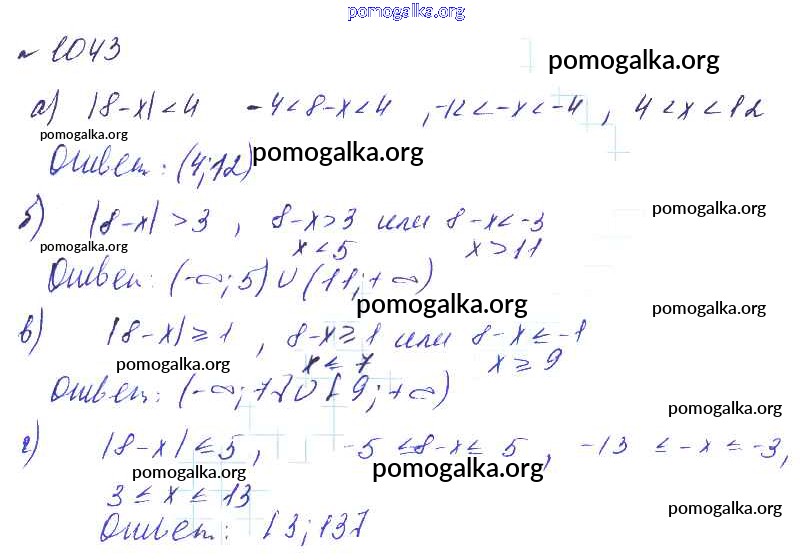 pomogalka.org
№ 1043
pomogalka.org
а) |8-x|<4 -4<8-x<4 , -12<-x<-4 , 4<x<12
pomogalka.org
Ответ: (4;12) pomogalka.org
б) |8-x|>3 , 8-x>3 или 8-x<-3 pomogalka.org
pomogalka.org x<5 x>11
Ответ: (-∞;5)∪(11;+∞)
pomogalka.org pomogalka.org
в) |8-x|≥1 , 8-x≥1 или 8-x≤-1
pomogalka.org x≤7 x≥9
Ответ: (-∞;7]∪[9;+∞)
pomogalka.org
г) |8-x|≤5, -5≤8-x≤5 , -13≤-x≤-3,
pomogalka.org pomogalka.org
3≤x≤13
pomogalka.org
Ответ: [3;13]